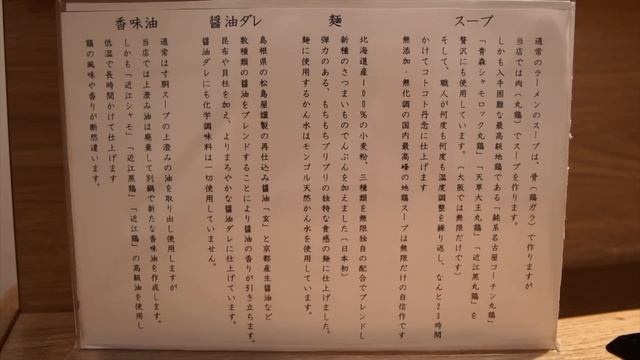 スープ
通常のラーメンのスープは、骨(鶏ガラ)で作りますが
当店では肉(丸鶏)でスープを作ります。
しかも入手困難な最高級地鶏である「純系名古屋コーチン丸鶏」
「青森シャモロック丸鶏」「天草大王丸鶏」「近江黒丸鶏」を
贅沢にも使用しています。(大阪では無限だけです)
そして、職人が何度も何度も温度調整を繰り返し、なんと23時間
かけてコトコト丹念に仕上げます
無添加・無化調の国内最高峰の地鶏スープは無限だけの自信作です
麺
北海道産100%の小麦粉、三種類を無限独自の配合でブレンドし
新種のさつまいものでんぷんを加えました(日本初)
弾力のある、もちもちプリプリの独特な食感の麺に仕上げました。
麺に使用するかん水はモンゴル天然かん水を使用しています。
醤油ダレ
島根県の松島屋謹製の再仕込み醤油「玄」と京都産生醤油など
数種類の醤油をブレンドすることにより醤油の香りが引き立ちます。
昆布や貝柱を加え、よりまろやかな醤油ダレに仕上げています。
醤油ダレにも化学調味料は一切使用していません。
香味油
通常は寸胴スープの上澄みの油を取り出し使用しますが
当店では上澄み油は廃棄して別鍋で新たな香味油を作成します。
しかも「近江シャモ」「近江黒鶏」「近江鶏」の高級油を使用し
低温で長時間かけて仕上げます
鶏の風味や香りが断然違います。